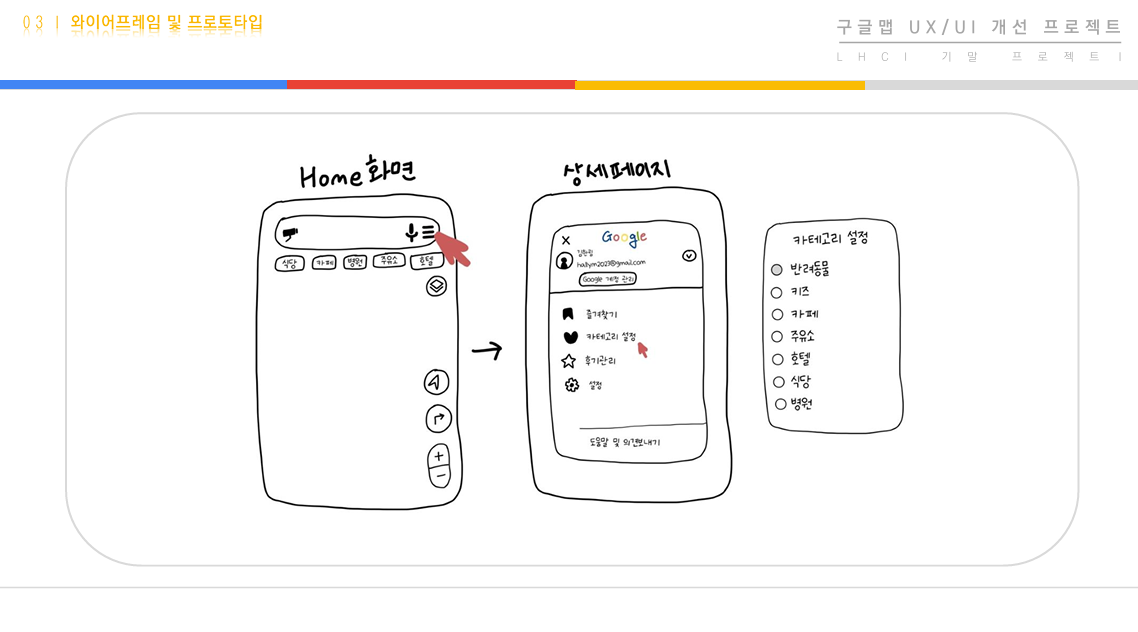 03 | 와이어프레임 및 프로토타입
구글맵 UX/UI 개선 프로젝트
LHCI 기말 프로젝트 I
Home 화면
식당 카페 병원 주유소 호텔
상세페이지
X Google
김한림
Google 계정 관리
즐겨찾기
카테고리 설정
후기관리
설정
도움말 및 의견보내기
카테고리 설정
반려동물
키즈
카페
주유소
호텔
식당
병원